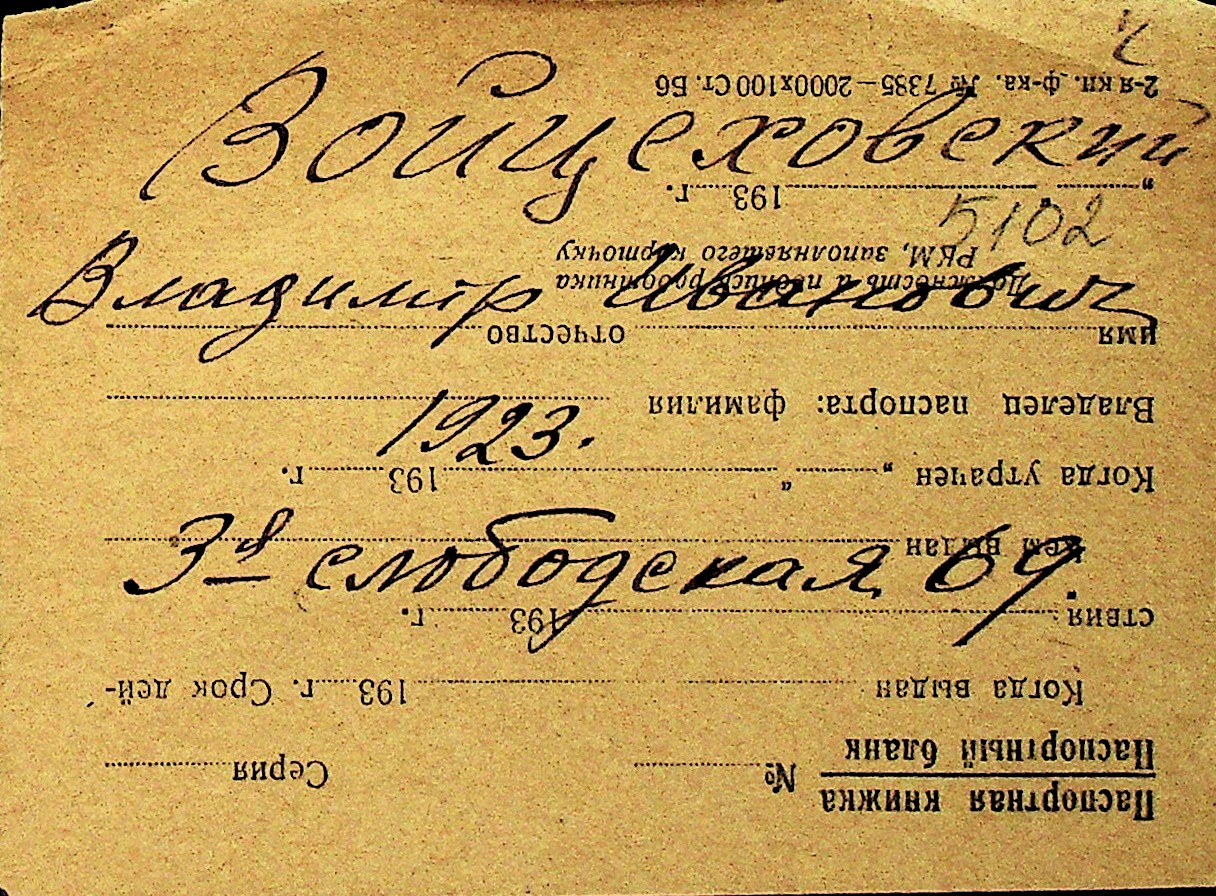 Войцеховский
5102
Владимір Иванович
1923.
3я слободская 69.
Паспортная книжка
Паспортный бланк
№ Серия
Когда выдан 193 г. Срок дей-
ствия 193 г.
Кем выдан
Когда утрачен „ “ 193 г.
Владелец паспорта: фамилия
имя отчество
Должность и подпись работника
РКМ, заполнявшего карточку
„ 193 г.
2-я кн. ф-ка. № 7385—2000х100 Ст. Бб